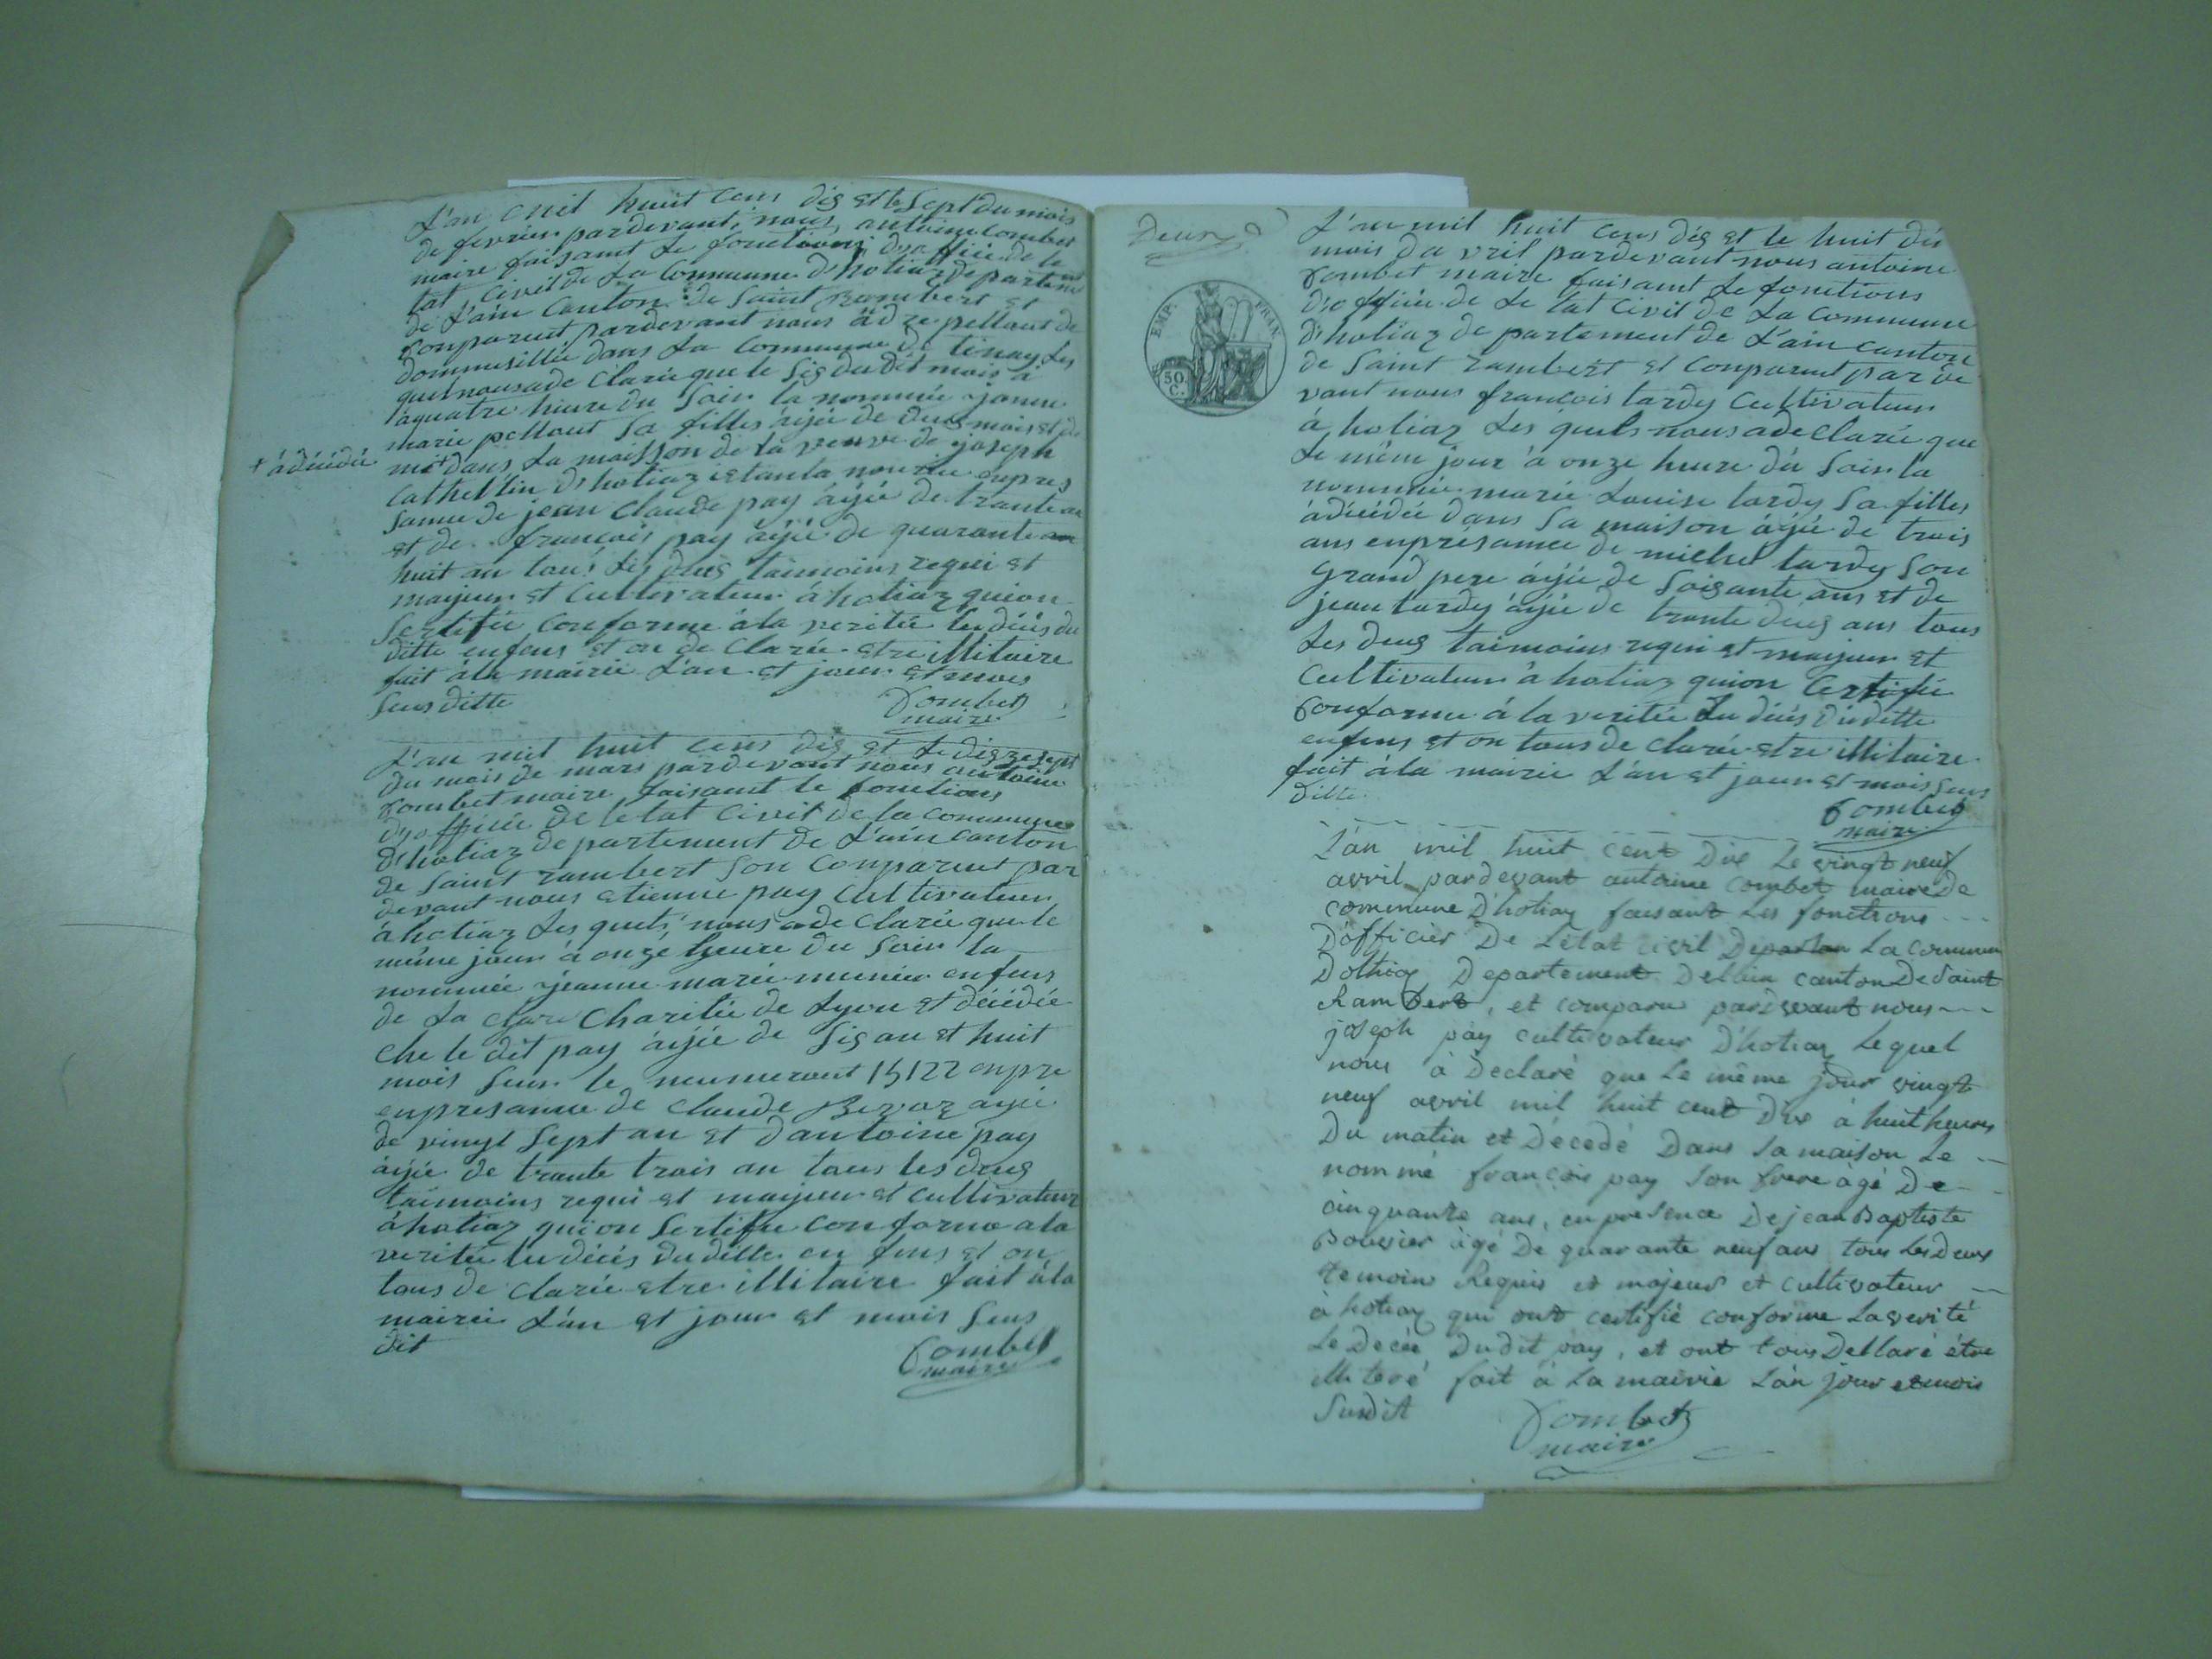 L'an mil huit cens dis et le sept du mois
de fevrier pardevant nous antoine combet
maire faisant le fonctions dyofficie de le
tat civil de la commune d'hotiaz departement
de L'ain canton de saint Rambert et
Comparut pardevant nous pellaut de
dommisilliée dans la commune de tinay Les
quel nousade Clarée que le sis dudit mois à
àquatre heure du soir la nommée janne
marie pellaut sa filles ájée de deus mois et de
mi + dans la maisson de la veuve de joseph
+ ádécédée
Cathellin d'hotiaz istanla nourrie enpres
sanne de jean claude pay ájée de trante an
et de francois pay ájée de quarante an
huit an tous Les deus taimoins requi et
majeur et Cultivateur á hotiaz quion
Sertifée conforme á la veritée le décés du
ditte enfens et on de Clarée etre illitaire
fait á la mairie L'an et jour et mois
Sens ditte
Combet
maire
L'an mil huit cens dis et Le disze sept
du mois de mars pardevant nous antoine
Combet maire faisant le fonctions
dyofficie de letat Civil de la commune
d'hotiaz departement de L'ain canton
de saint rambert Son Comparut par
devant nous etienne pay Cultivateur
á hotiaz Les quels nous a de clarée que le
même jour á onze heure du soir la
nommée jéanne marie meunier enfens
de la Charitée de Lyon et décédée
Che le dit pay ájée de sis an et huit
mois sur le neumerant 15122 enpre
enpresanne de claude Bevoz ajée
de vingt sept an et dantoine pay
ájée de trante trois an tous les deus
taimoins requi et majeur et cultivateur
á hotiaz quion Sertifée conforme a la
veritée le décés du ditte en fens et on
tous de clarée etre illitaire fait á la
mairie L'an et jour et mois Sens
dit
Combet
maire
Deux
EMP. FRAN
50.
C.
L'an mil huit cens dis et le huit du
mois d'a vril pardevant nous antoine
Combet maire faisant Le fonctions
d'officie de Le tat civil de La Commune
d'hotiaz de partement de L'ain canton
de Saint rambert et Conparut par de
vant nous francois tardy Cultivateur
á hotiaz Les quels nous a de clarée que
Le même jour á onze heure du soir la
nommée marie Louise tardy sa filles
ádécédée dans sa maison ájée de trois
ans enprésanne de michel tardy son
grand pere ájée de soisante ans et de
jean tardy ájée de trante deus ans tous
Les deus taimoins requi et majeur et
Cultivateur á hotiaz quion Certifée
Conforme á la veritée Le décés du ditte
enfens et on tous de clarée etre illitaire
fait á la mairie L'an et jour et mois sens
ditte.
Combet
maire
L'án mil huit cent Dix Le vingt neuf
avril pardevant antoine combet maire De
commune D'hotiaz faisant Les fonctions
D'officier De L'état civil Departem La commune
Dothiaz Departement Dellain canton De saint
Rambert, et comparu pardevant nous
joseph pay cultivateur D'hotiaz Le quel
nous à Déclaré que Le même jour vingt
neuf avril mil huit cent Dix à huit heures
Du matin et Décedé Dans sa maison Le
nommé françois pay son frere àgé De
cinquante ans, en présence De jean Baptiste
Bouvier àgé De quarante neuf ans tous Les deux
temoins Requis et majeur et cultivateur
à hotiaz qui ont certifié conforme La verité
Le Decée Dudit pay, et ont tous Dellaré étre
illiteré fait à La mairie L'án jour et mois
Susdit
Combet
maire